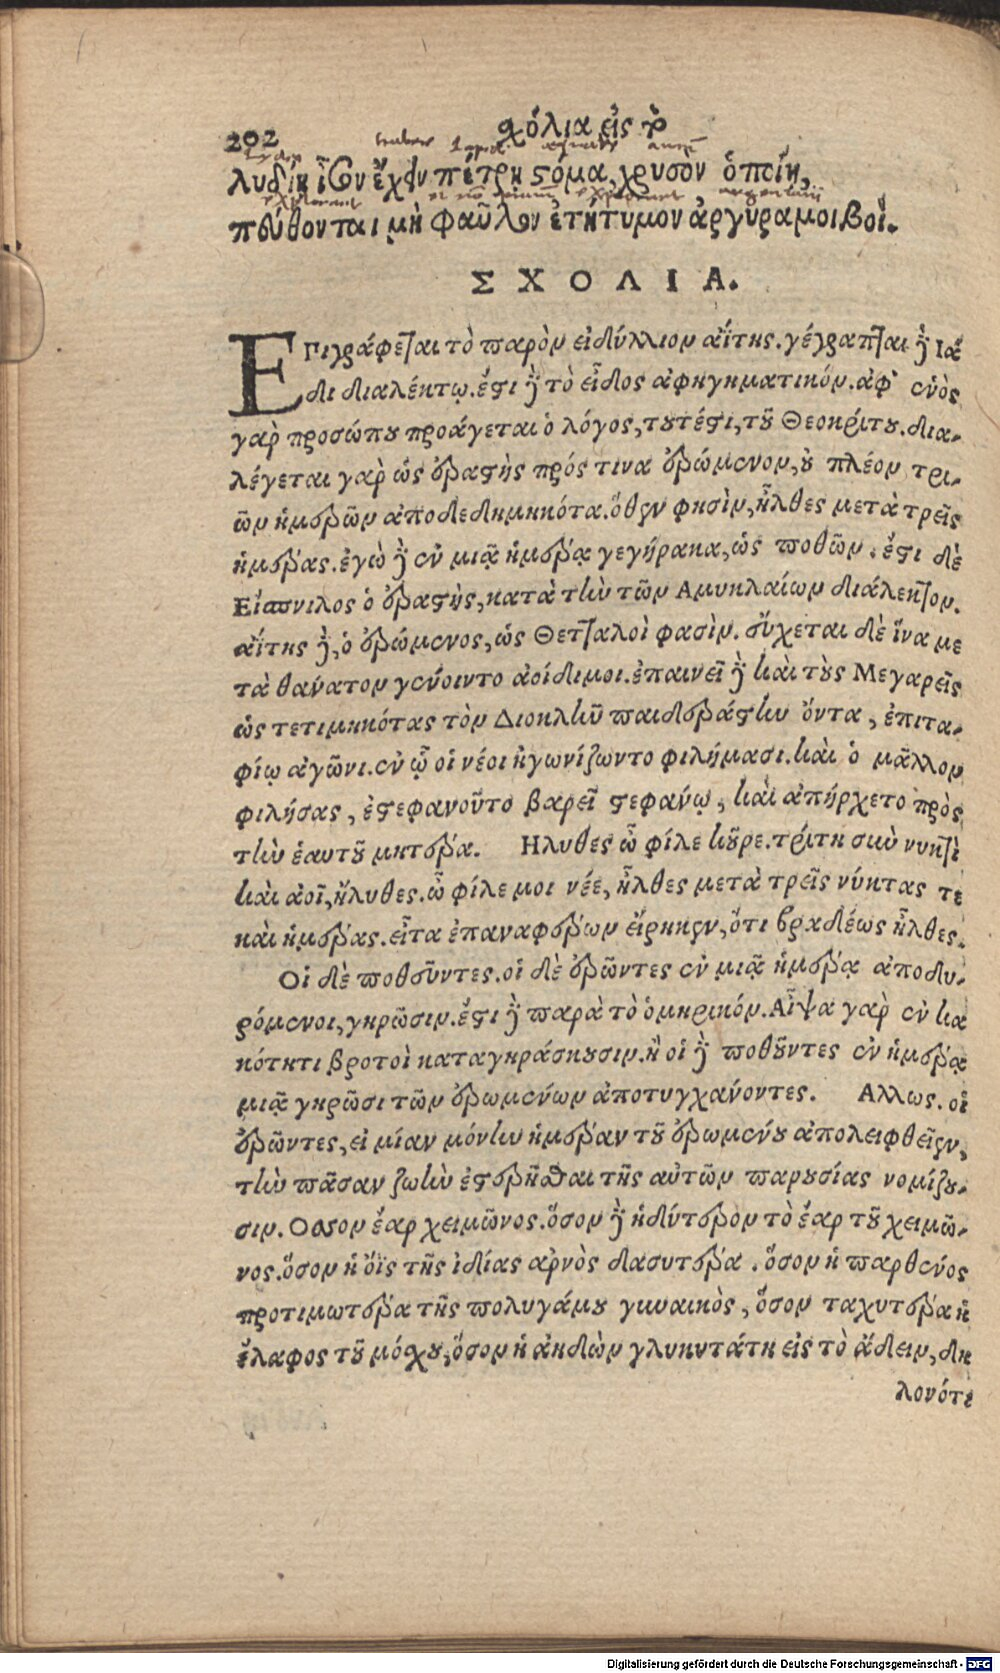 202 σχόλια εἰς τὸ
λυδίη ἶσον ἔχειν πέτρῃ στόμα, χρυσὸν ὁποίῃ,
πεύθονται μὴ φαῦλον ἐτήτυμον ἀργυραμοιβοί.
ΣΧΟΛΙΑ.
ΕΠιγράφεται τὸ παρὸν εἰδύλλιον ἀΐτης. γέγραπται δὲ Ἰά
δι διαλέκτῳ. ἔστι δὲ τὸ εἶδος ἀφηγηματικόν. ἀφ' ἑνὸς
γὰρ προσώπου προάγεται ὁ λόγος, τουτέστι, τοῦ Θεοκρίτου. δια-
λέγεται γὰρ ὡς ἐραστὴς πρός τινα ἐρώμενον, οὐ πλέον τρι-
ῶν ἡμερῶν ἀποδεδημηκότα. ὅθεν φησὶν, ἦλθες μετὰ τρεῖς
ἡμέρας. ἐγὼ δὲ ἐν μιᾷ ἡμέρᾳ γεγήρακα, ὡς ποθῶν. ἔστι δὲ
Εἴσπνιλος ὁ ἐραστὴς, κατὰ τὴν τῶν Ἀμυκλαίων διάλεκτον.
ἀΐτης δὲ, ὁ ἐρώμενος, ὡς Θετταλοὶ φασὶν. εὔχεται δὲ ἵνα με
τὰ θάνατον γένοιντο ἀοίδιμοι. ἐπαινεῖ δὲ καὶ τοὺς Μεγαρεῖς
ὡς τετιμηκότας τὸν Διοκλῆν παιδεράστην ὄντα, ἐπιτα-
φίῳ ἀγῶνι. ἐν ᾧ οἱ νέοι ἠγωνίζωντο φιλήμασι. καὶ ὁ μᾶλλον
φιλήσας, ἐστεφανοῦτο βαρεῖ στεφάνῳ, καὶ ἀπήρχετο πρὸς
τὴν ἑαυτοῦ μητέρα. Ηλυθες ὦ φίλε κοῦρε. τρίτη σὺν νυκτὶ
καὶ ἀοῖ, ἤλυθες. ὦ φίλε μοι νέε, ἦλθες μετὰ τρεῖς νύκτας τε
καὶ ἡμέρας. εἶτα ἐπαναφέρων εἴρηκεν, ὅτι βραδέως ἦλθες.
Οἱ δὲ ποθεῦντες. οἱ δὲ ἐρῶντες ἐν μιᾷ ἡμέρᾳ ἀποδυ-
ρόμενοι, γηρῶσιν. ἔστι δὲ παρὰ τὸ ὁμηρικόν. Αἶψα γὰρ ἐν κα
κότητι βροτοὶ καταγηράσκουσιν. ἢ οἱ δὲ ποθοῦντες ἐν ἡμέρᾳ
μιᾷ γηρῶσι τῶν ἐρωμένων ἀποτυγχάνοντες. Αλλως. οἱ
ἐρῶντες, εἰ μίαν μόνην ἡμέραν τοῦ ἐρωμένου ἀπολειφθεῖεν,
τὴν πᾶσαν ζωὴν ἐστερῆσθαι τῆς αὐτῶν παρουσίας νομίζου-
σιν. Οσσον ἔαρ χειμῶνος. ὅσον δὲ ἡδύτερον τὸ ἔαρ τοῦ χειμῶ-
νος. ὅσον ἡ ὄϊς τῆς ἰδίας ἀρνὸς δασυτέρα. ὅσον ἡ παρθένος
προτιμωτέρα τῆς πολυγάμου γυναικὸς, ὅσον ταχυτέρα ἡ
ἔλαφος τοῦ μόσχου, ὅσον ἡ ἀηδὼν γλυκυτάτη εἰς τὸ ᾄδειν, δη
λονότι
Digitalisierung gefördert durch die Deutsche Forschungsgemeinschaft - DFG